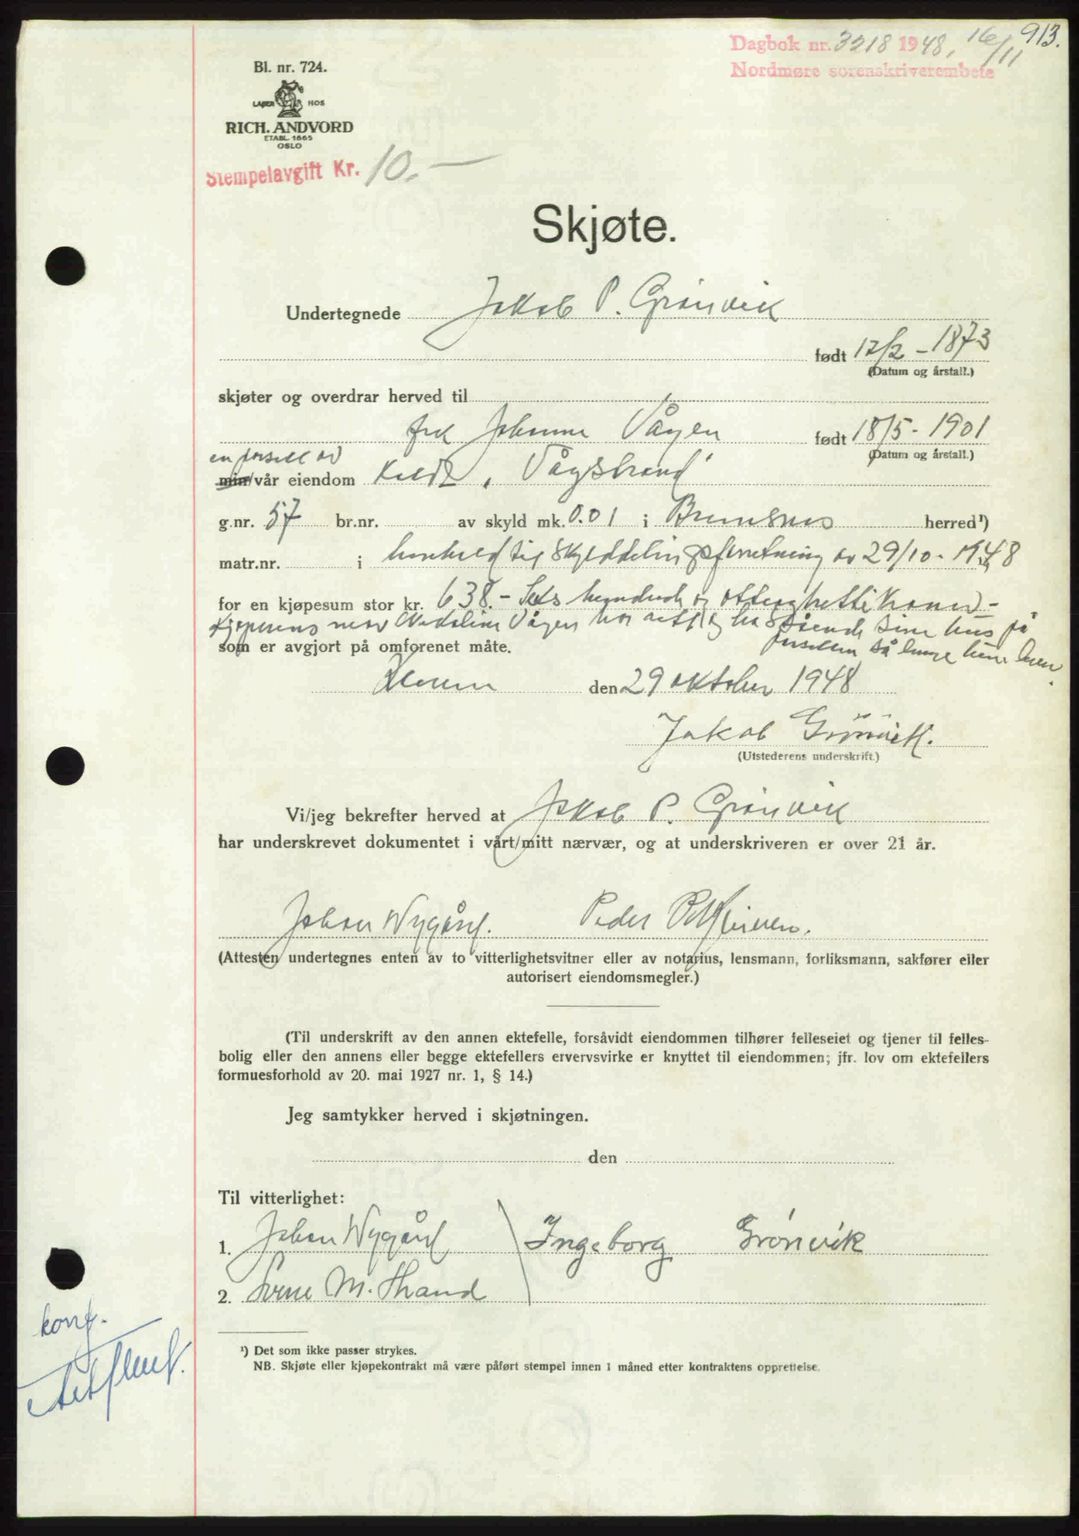 913.
Dagbok nr. 3218 1948, 16/11
Nordmøre sorenskriverembete
Bl. nr. 724.
LAGER HOS
RICH. ANDVORD
ETABL. 1865
OSLO
Stempelavgift Kr. 10.-
Skjøte.
Undertegnede Jakob P. Grønvik
født 12/2 - 1873
(Datum og årstall.)
skjøter og overdrar herved til
frk Johanna Vågen født 18/5 - 1901
(Datum og årstall.)
en parsell av
min/vår eiendom kaldt „Vågstrand"
g.nr. 57 br.nr. av skyld mk. 0.01 i Bremsnes herred¹)
matr.nr. i henhold til skylddelingsforretning av 29/10 - 1948
for en kjøpesum stor kr. 638.- Seks hundrede og ottogtretti kroner -
Kjøperens mor Vågen har rett til å ha stående sine hus på
parsellen så lenge hun lever.
som er avgjort på omforenet måte.
den 29 oktober 1948
Jakob Grønvik.
(Utstederens underskrift.)
Vi/jeg bekrefter herved at Jakob P. Grønvik
har underskrevet dokumentet i vårt/mitt nærvær, og at underskriveren er over 21 år.
Johan Nygård. Peder
(Attesten undertegnes enten av to vitterlighetsvitner eller av notarius, lensmann, forliksmann, sakfører eller
autorisert eiendomsmegler.)
(Til underskrift av den annen ektefelle, forsåvidt eiendommen tilhører felleseiet og tjener til felles-
bolig eller den annens eller begge ektefellers ervervsvirke er knyttet til eiendommen; jfr. lov om ektefellers
formuesforhold av 20. mai 1927 nr. 1, § 14.)
Jeg samtykker herved i skjøtningen.
den
Til vitterlighet:
1. Johan Nygård Ingeborg Grønvik
2. M. Strand
¹) Det som ikke passer strykes.
NB. Skjøte eller kjøpekontrakt må være påført stempel innen 1 måned etter kontraktens opprettelse.
konf.